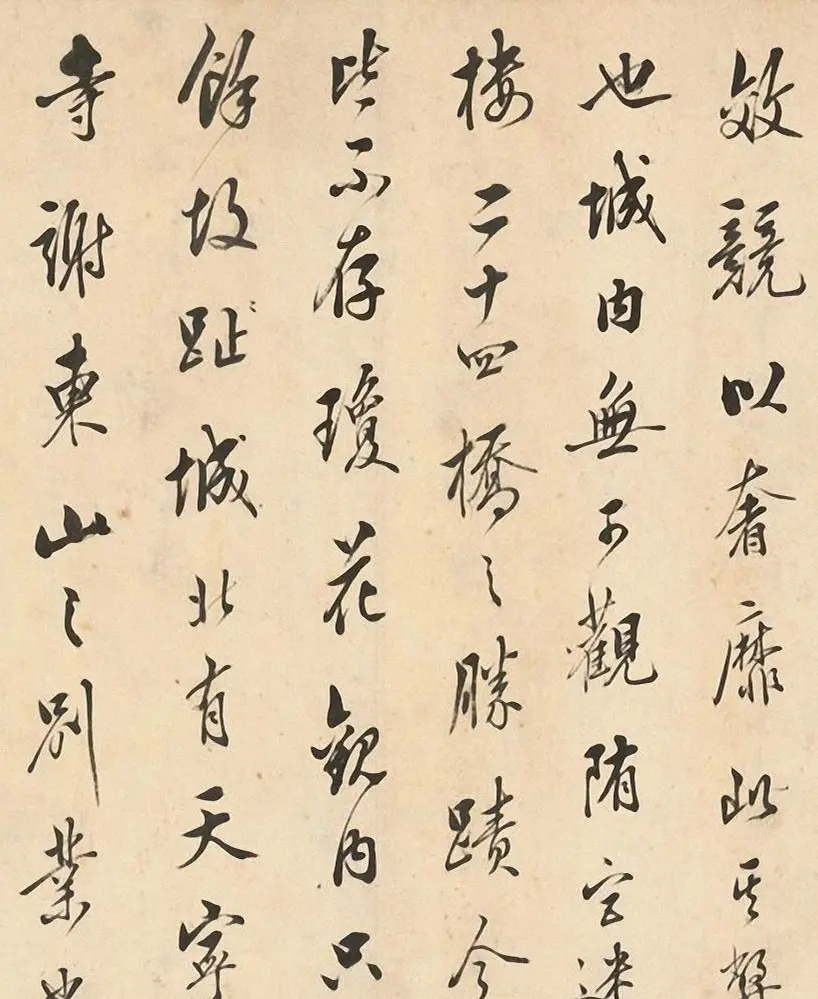 效競以奢靡此其弊
也城內無可觀隋宮迷
樓二十四橋之勝蹟今
皆不存瓊花觀內只
餘故趾城北有天寧
寺謝東山之別業也